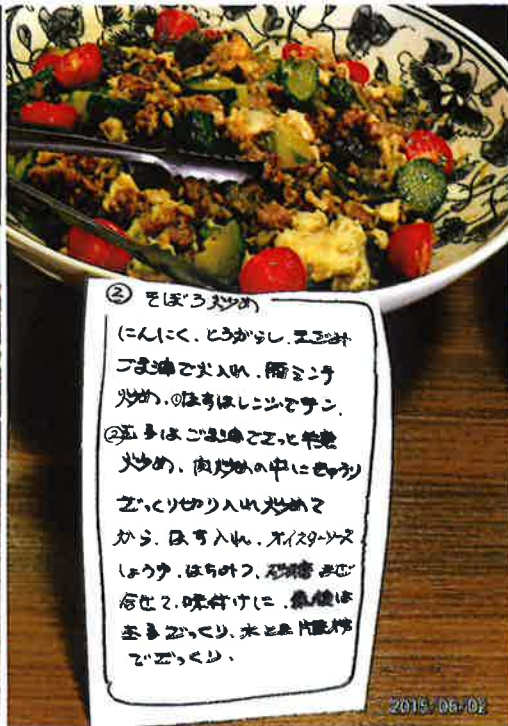 ② そぼろ炒め
にんにく、とうがらし、
ごま油で火入れ、豚ミンチ
炒め、①はすはレンジでチン、
②玉子はごま油でさっと半熟
炒め、肉炒めの中にきゅうり
ざっくり切り入れ炒めて
から、はす入れ、オイスターソース
しょうゆ、はちみつ、砂糖
合せて、味付けに、最後は
玉子ざっくり、水と片栗粉
でざっくり。
2015-06-02